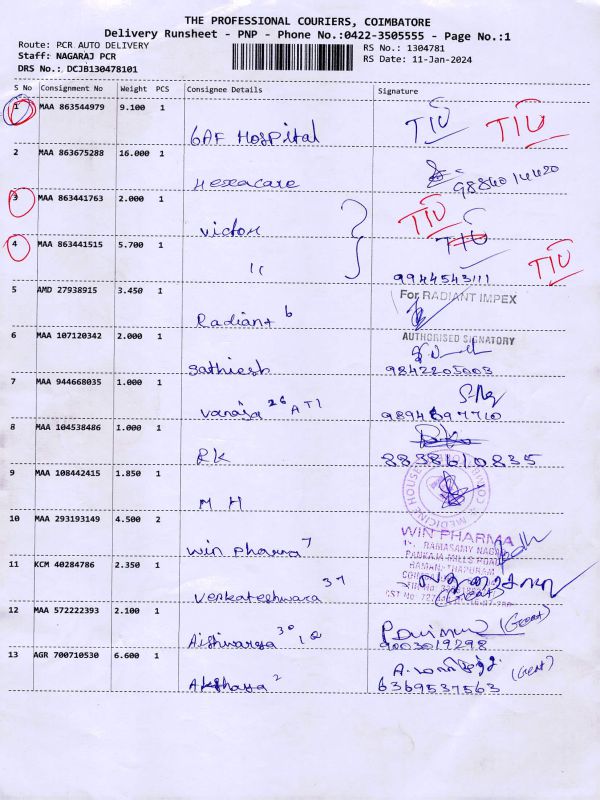 THE PROFESSIONAL COURIERS, COIMBATORE
Delivery Runsheet - PNP - Phone No.:0422-3505555 - Page No.:1
Route: PCR AUTO DELIVERY RS No.: 1304781
Staff: NAGARAJ PCR RS Date: 11-Jan-2024
DRS No.: DCJB130478101
S No Consignment No Weight PCS Consignee Details Signature
1 MAA 863544979 9.100 1
GAF Hospital TIU TIU
2 MAA 863675288 16.000 1
Hexacare 9884014420
3 MAA 863441763 2.000 1
Victor TIU
4 MAA 863441515 5.700 1 TIU
11 9944543111 TIU
5 AMD 27938915 3.450 1 For RADIANT IMPEX
Radiant 6
6 MAA 107120342 2.000 1 AUTHORISED SIGNATORY
Sathiesh 9842205003
7 MAA 944668035 1.000 1
Vanaja 26 ATI 9894897710
8 MAA 104538486 1.000 1
RK 8838610835
9 MAA 108442415 1.850 1
MH MEDICINE HOUSE
10 MAA 293193149 4.500 2
Win Pharma 7 WIN PHARMA
RAMASAMY NAGAR
PANKAJA MILLS ROAD
RAMANATHAPURAM
11 KCM 40284786 2.350 1
Venkateshwara 37
12 MAA 572222393 2.100 1
Aishwarya 30 9003019298
13 AGR 700710530 6.600 1
Akshaya 2 6369537563